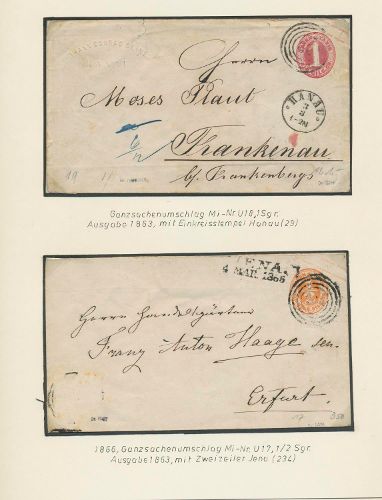 Herrn
1
HANAU
Moses Plaut
Frankenau
b/ Frankenberg
Ganzsachenumschlag Mi-Nr. U 18, 1 Sgr.
Ausgabe 1863, mit Einkreisstempel Hanau (29)
JENA
4 MAR 1866
Herrn Handelsgärtner
Franz Anton Haage sen.
Erfurt
1866, Ganzsachenumschlag Mi-Nr. U 17, 1/2 Sgr.
Ausgabe 1863, mit Zweizeiler Jena (234)